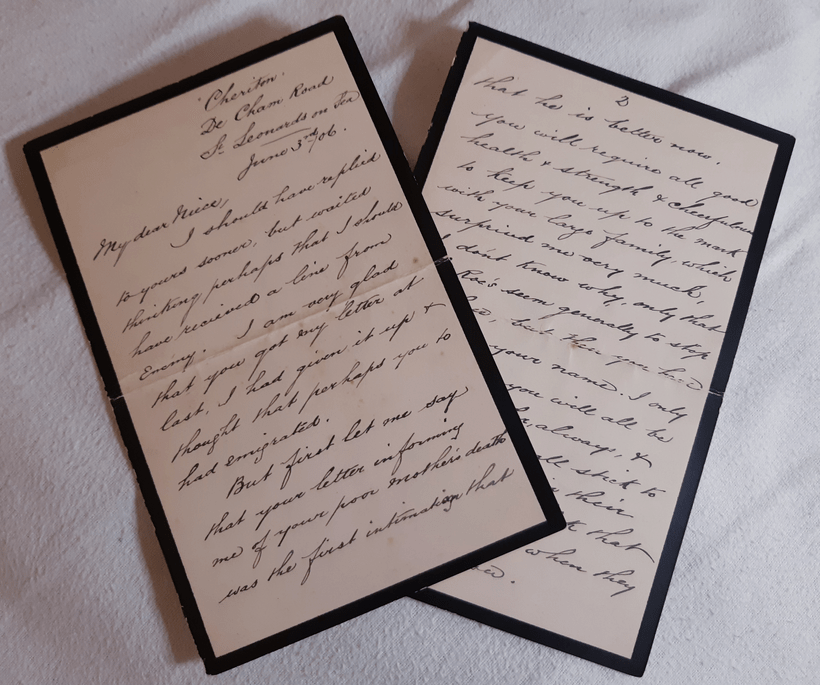 'Cheriton.
De Cham Road
St. Leonards on Sea
June 3rd/06.
My dear Niece,
I should have replied
to yours sooner, but waited
thinking perhaps that I should
have recieved a line from
Emmy. I am very glad
that you got my letter at
last, I had given it up &
thought that perhaps you to
had emigrated.
But first let me say
that your letter informing
me of your poor mother's death
was the first intimation that
2
that he is better now.
you will require all good
health & strength & cheerfulness
to keep you up to the mark
with your large family, which
surprised me very much,
I dont know why, only that
Roe's seem generally to stop
but then you had
your name. I only
you will all be
always, &
all stick to
in their
that
when they